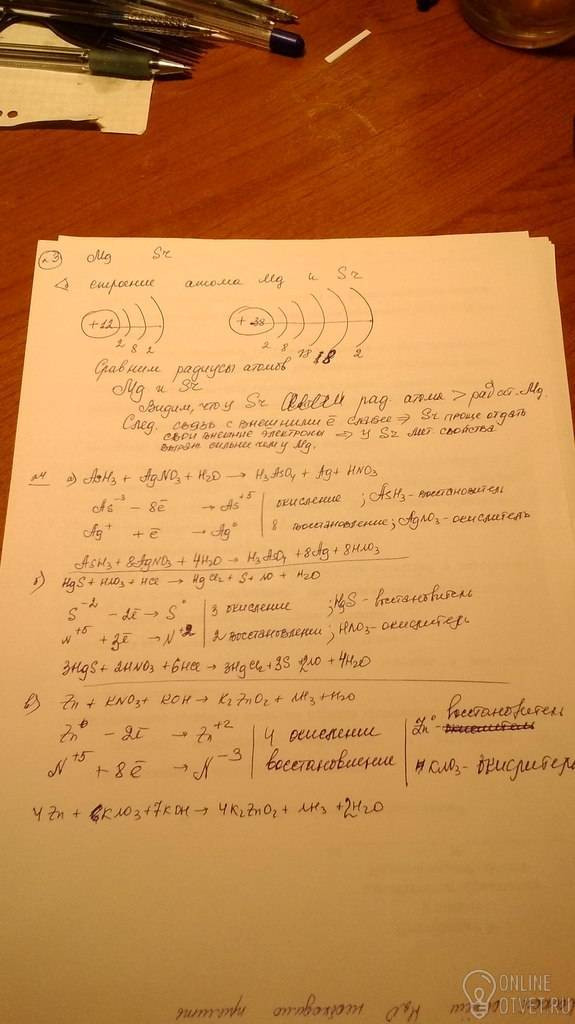 №3 Mg Sr
строение атома Mg и Sr
+12 2 8 2
+38 2 8 18 8 2
Сравним радиусы атомов
Mg и Sr
Видим, что у Sr рад. атома > рад ат. Mg.
След. связь с внешними ē слабее ⇒ Sr проще отдать
свои внешние электроны ⇒ у Sr мет свойства
выраж сильнее чем у Mg.
№4 а) AsH3 + AgNO3 + H2O → H3AsO4 + Ag + HNO3
As⁻³ - 8ē → As⁺⁵ | окисление ; AsH3 - восстановитель
Ag⁺ + ē → Ag⁰ | 8 восстановление; AgNO3 - окислитель
AsH3 + 8AgNO3 + 4H2O → H3AsO4 + 8Ag + 8HNO3
б) HgS + HNO3 + HCl → HgCl2 + S + NO + H2O
S⁻² - 2ē → S⁰ | 3 окисление ; HgS - восстановитель
N⁺⁵ + 3ē → N⁺² | 2 восстановлении; HNO3 - окислитель
3HgS + 2HNO3 + 6HCl → 3HgCl2 + 3S 2NO + 4H2O
в) Zn + KNO3 + KOH → K2ZnO2 + NH3 + H2O
Zn⁰ - 2ē → Zn⁺² | 4 окислении | Zn⁰ - восстановитель
N⁺⁵ + 8ē → N⁻³ | восстановление | KNO3 - окислитель
4Zn + KNO3 + 7KOH → 4K2ZnO2 + NH3 + 2H2O
H2O необходимо прилить
ONLINE
OTVET.RU